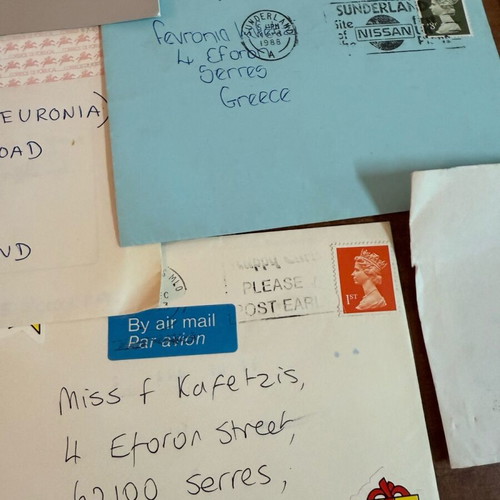 Fevronia
4 Eforon
Serres
Greece
SUNDERLAND
1988
A
SUNDERLAN
site
of
NISSAN
EURONIA)
OAD
ND
PLEASE
POST EARL
1ST
By air mail
Par avion
Miss f Kafetzis,
4 Eforon Street,
62100 serres,